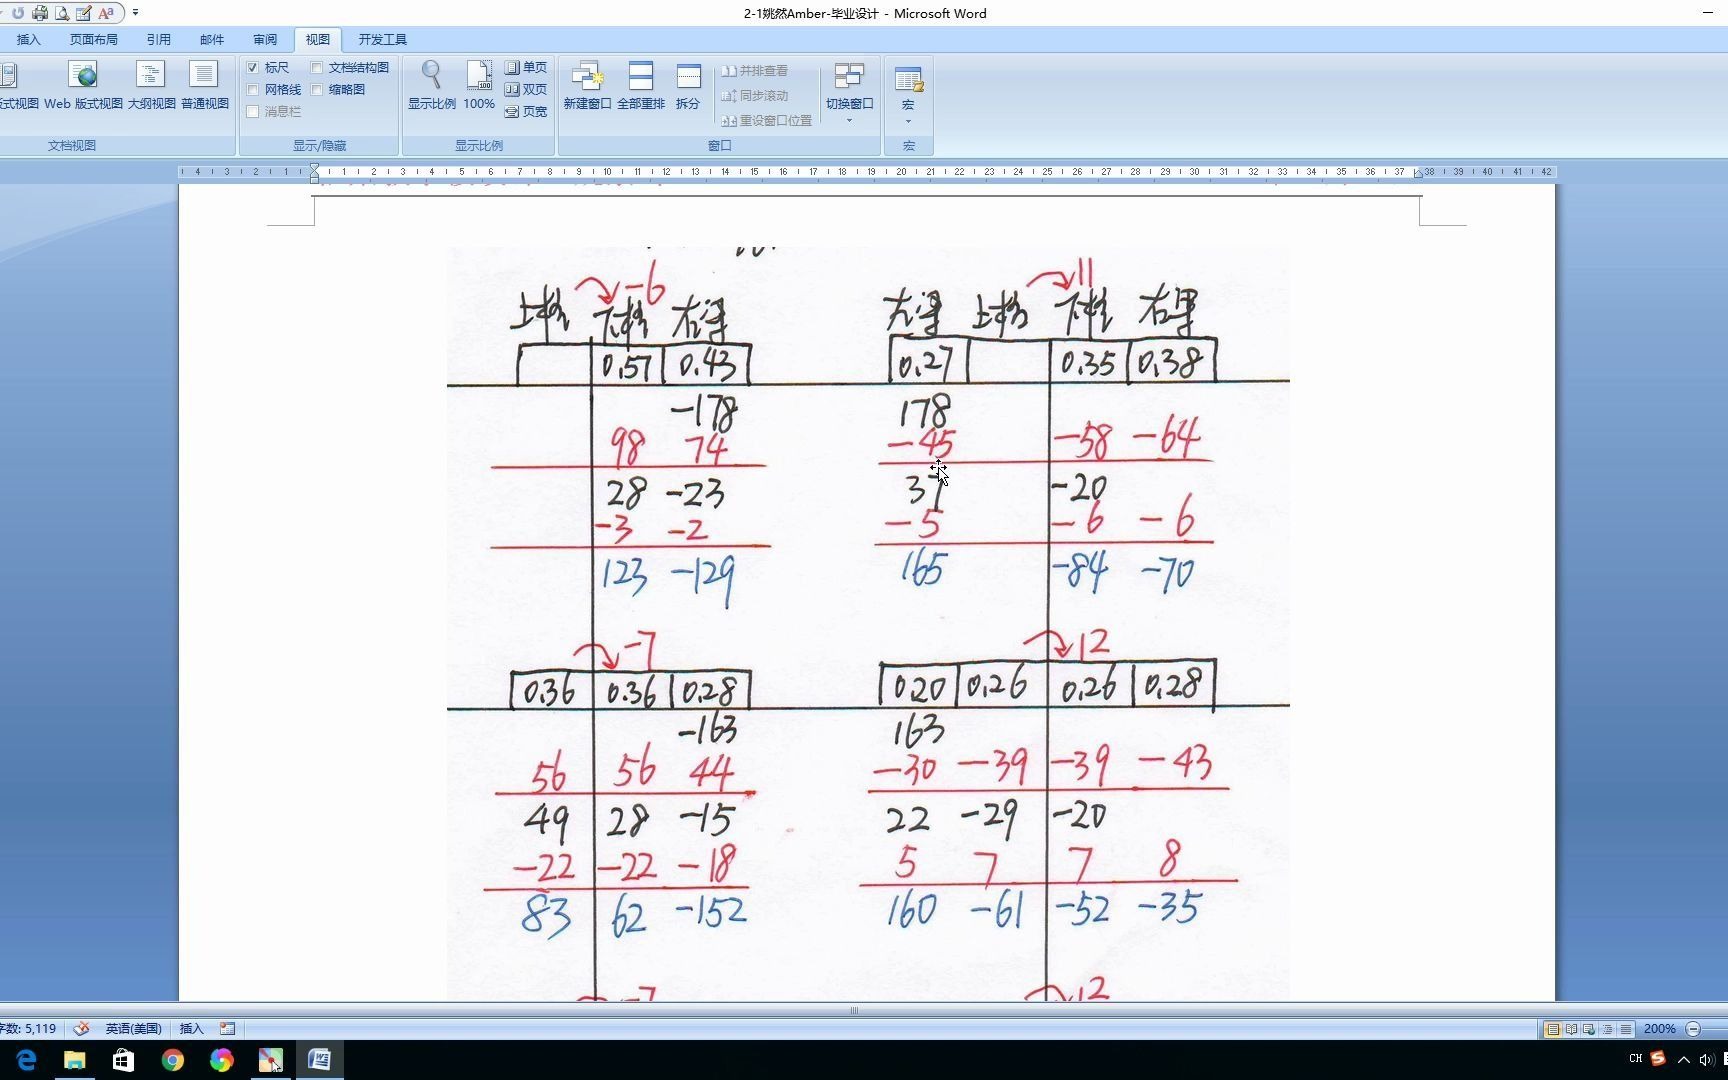 2-1姚然Amber-毕业设计 - Microsoft Word
插入 页面布局 引用 邮件 审阅 视图 开发工具
式视图 Web 版式视图 大纲视图 普通视图
文档视图
标尺 文档结构图
网格线 缩略图
消息栏
显示/隐藏
显示比例 100% 单页
双页
页宽
显示比例
新建窗口 全部重排 拆分
并排查看
同步滚动
重设窗口位置
切换窗口
窗口
宏
宏
4 3 2 1 1 2 3 4 5 6 7 8 9 10 11 12 13 14 15 16 17 18 19 20 21 22 23 24 25 26 27 28 29 30 31 32 33 34 35 36 37 38 39 40 41 42
-6 11
上柱 下柱 右梁 左梁 上柱 下柱 右梁
0.57 0.43 0.27 0.35 0.38
-178 178
98 74 -45 -58 -64
28 -23 37 -20
-3 -2 -5 -6 -6
123 -129 165 -84 -70
-7 12
0.36 0.36 0.28 0.20 0.26 0.26 0.28
-163 163
56 56 44 -30 -39 -39 -43
49 28 -15 22 -29 -20
-22 -22 -18 5 7 7 8
83 62 -152 160 -61 -52 -35
-7 12
字数: 5,119 英语(美国) 插入 200%
CH